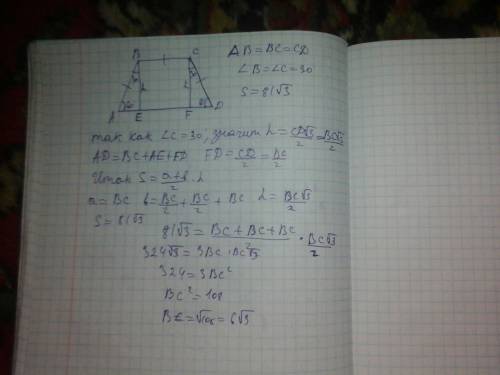 B C
A E F D
h h
AB=BC=CD
∠B=∠C=30°
S=81√3
так как ∠C=30°, значит h=CD√3/2=BC√3/2
AD=BC+AE+FD FD=CD/2=BC/2
Итак S=a+b/2·h
a=BC b=BC/2+BC/2+BC h=BC√3/2
S=81√3
81√3=BC+BC+BC/2·BC√3/2
324√3=3BC·BC²√3
324=3BC²
BC²=108
BC=√108=6√3